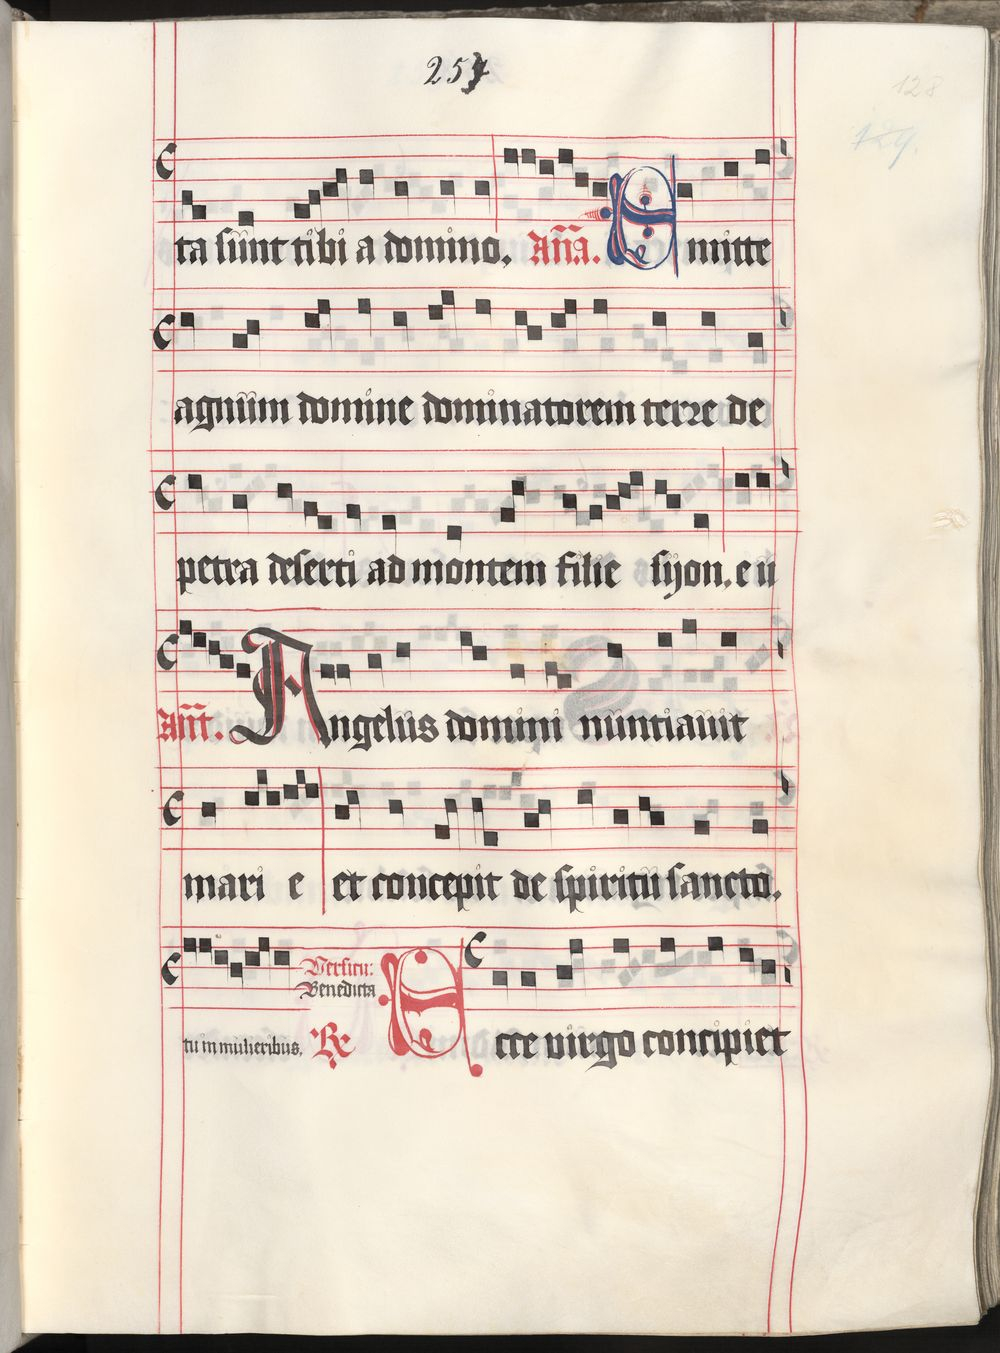 257
128
129.
ta sunt tibi a domino. Aña. Emitte
agnum domine dominatorem terre de
petra deserti ad montem filie sijon. e u
Añt. Angelus domini nuntiauit
mari e et concepit de spiritu sancto.
Versicu:
Benedicta
tu in mulieribus. R Ecce virgo concipiet